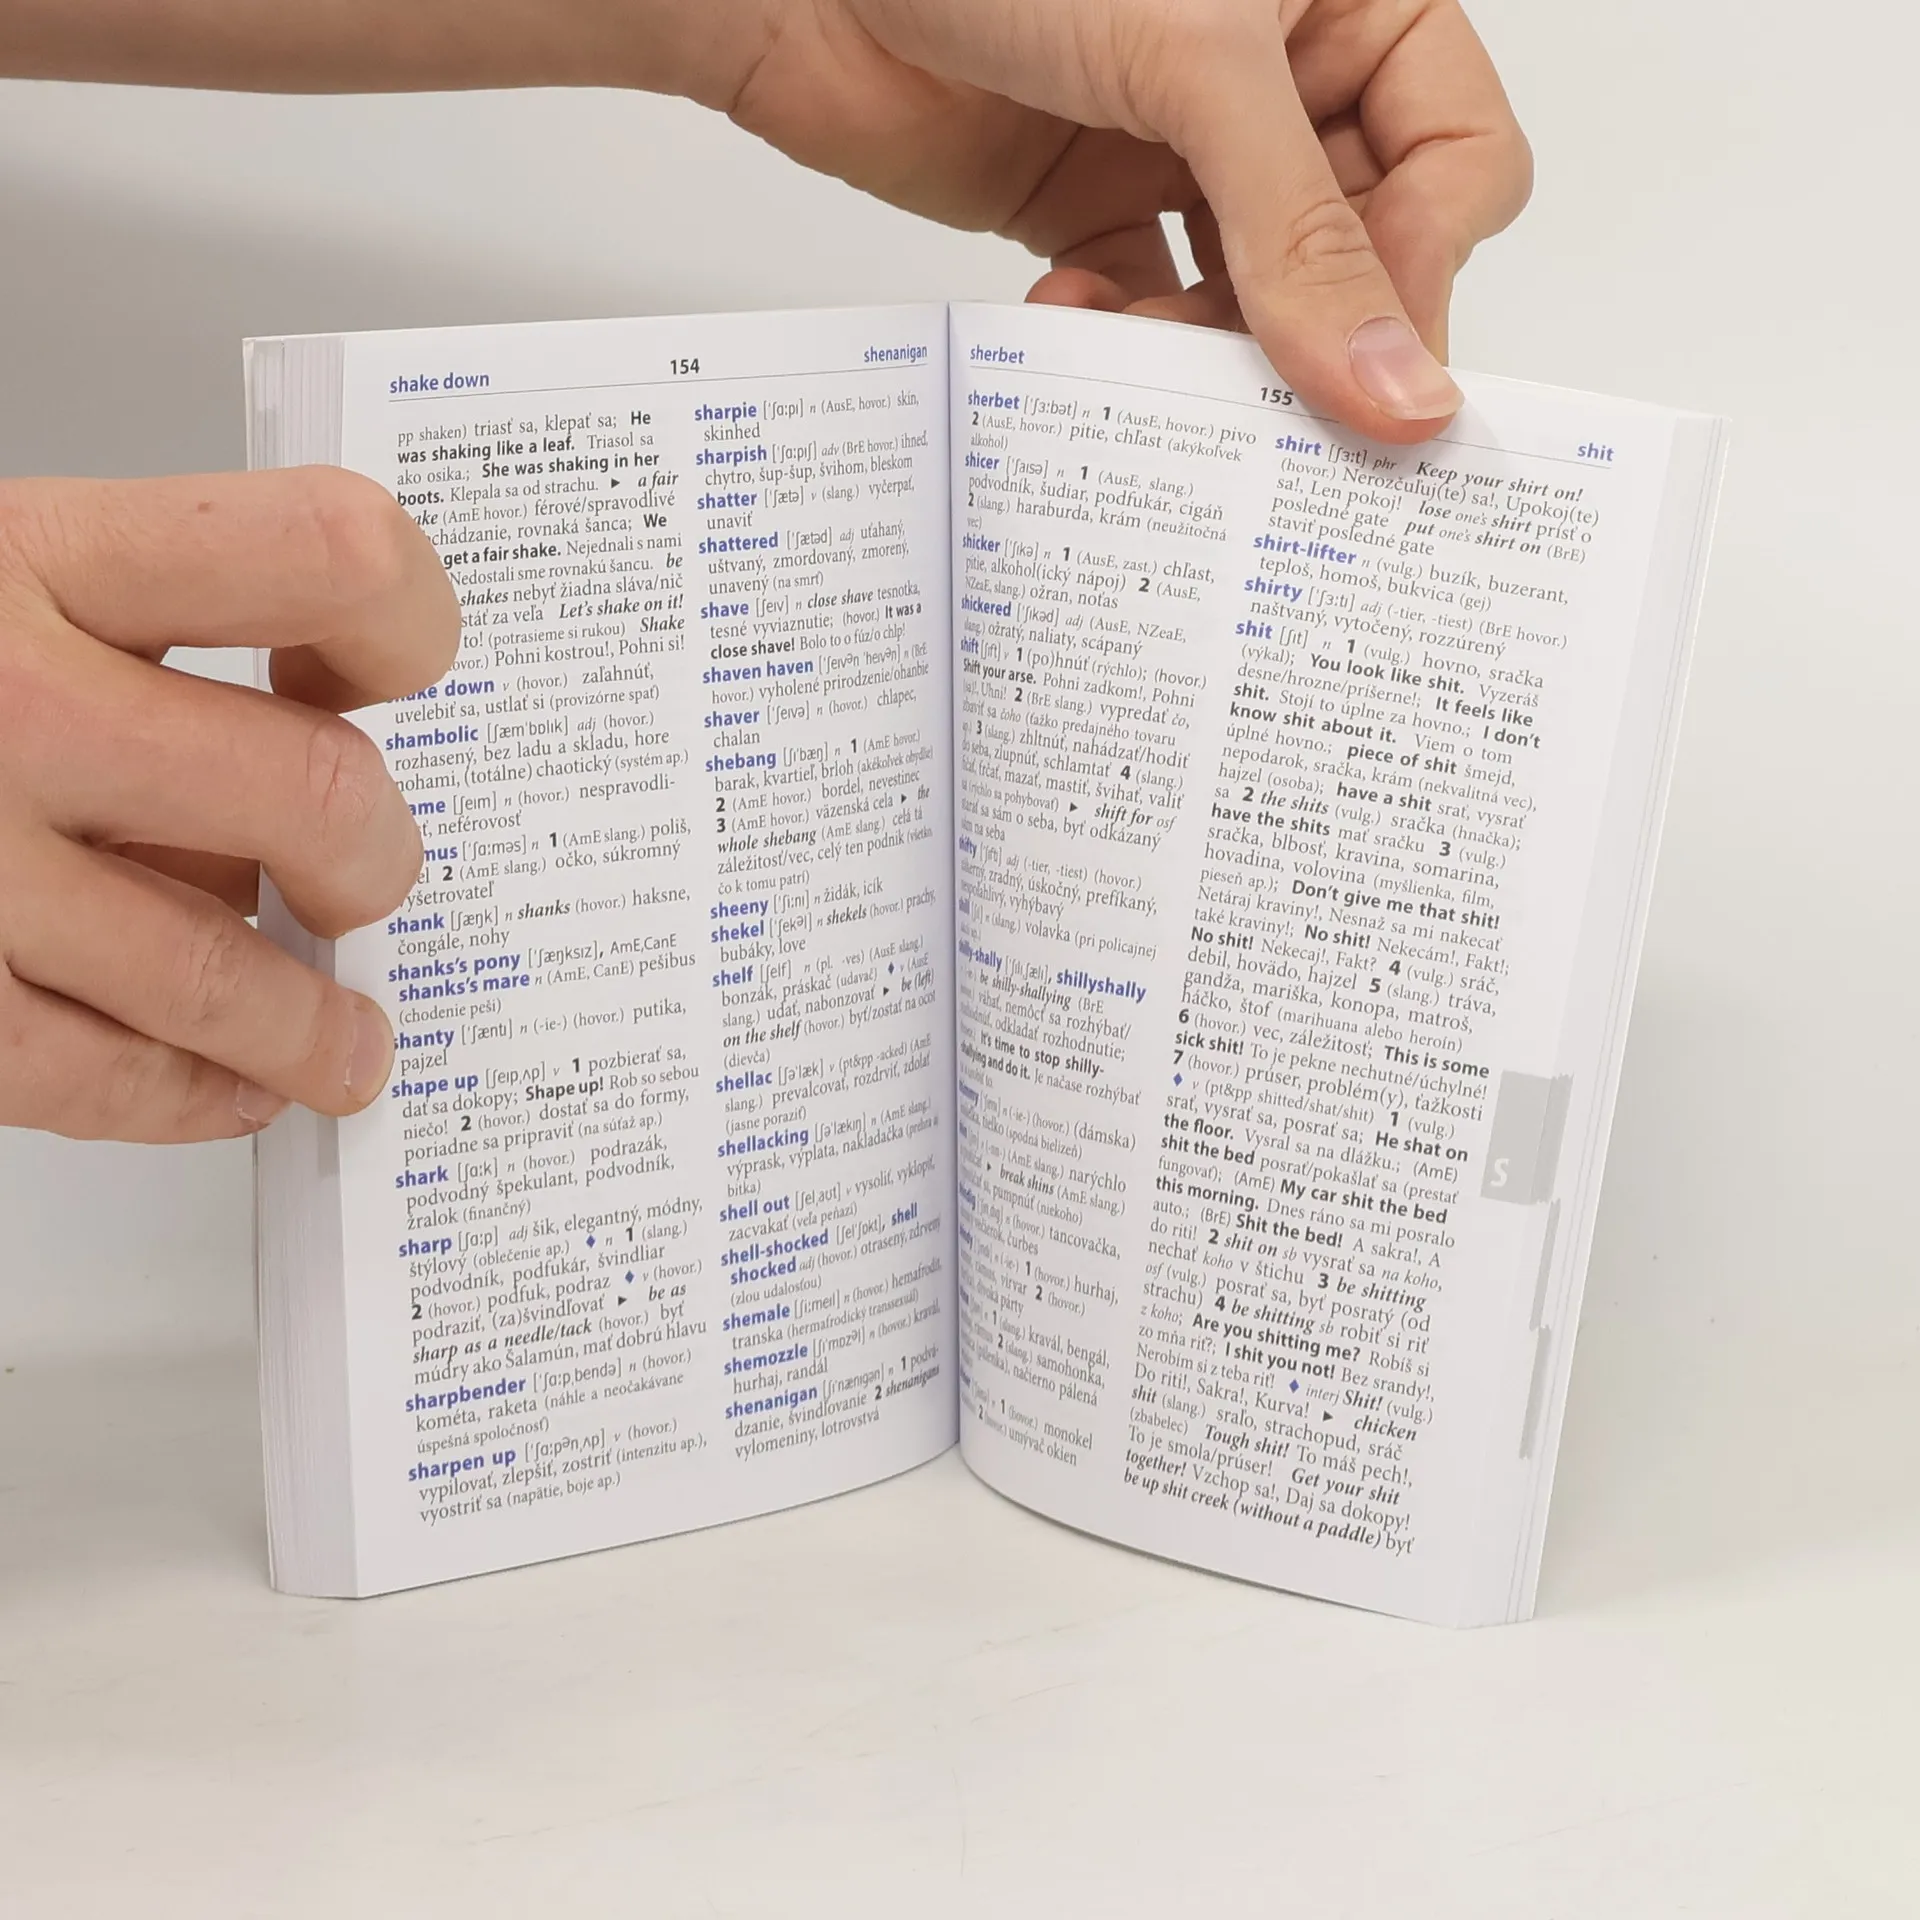 shake down
154
shenanigan
pp shaken) triasť sa, klepať sa; He
was shaking like a leaf. Triasol sa
ako osika.; She was shaking in her
boots. Klepala sa od strachu. ► a fair
(AmE hovor.) férové/spravodlivé
rovnaká šanca; We
get a fair shake. Nejednali s nami
Nedostali sme rovnakú šancu. be
shakes nebyť žiadna sláva/nič
za veľa Let's shake on it!
to! (potrasieme si rukou) Shake
Pohni kostrou!, Pohni si!
down v (hovor.) zaľahnúť,
uvelebiť sa, ustlať si (provizórne spať)
shambolic [ʃæmˈbɒlɪk] adj (hovor.)
rozhasený, bez ladu a skladu, hore
nohami, (totálne) chaotický (systém ap.)
[ʃeɪm] n (hovor.) nespravodli-
neférovosť
[ˈʃɑːməs] n 1 (AmE slang.) poliš,
2 (AmE slang.) očko, súkromný
vyšetrovateľ
shank [ʃæŋk] n shanks (hovor.) haksne,
čongále, nohy
shanks's pony [ˈʃæŋksɪz], AmE,CanE
shanks's mare n (AmE, CanE) pešibus
(chodenie peši)
shanty [ˈʃæntɪ] n (-ie-) (hovor.) putika,
pajzel
shape up [ʃeɪpˌʌp] v 1 pozbierať sa,
dať sa dokopy; Shape up! Rob so sebou
niečo! 2 (hovor.) dostať sa do formy,
poriadne sa pripraviť (na súťaž ap.)
shark [ʃɑːk] n (hovor.) podrazák,
podvodný špekulant, podvodník,
žralok (finančný)
sharp [ʃɑːp] adj šik, elegantný, módny,
štýlový (oblečenie ap.) ♦ n 1 (slang.)
podvodník, podfukár, švindliar
2 (hovor.) podfuk, podraz ♦ v (hovor.)
podraziť, (za)švindľovať ► be as
sharp as a needle/tack (hovor.) byť
múdry ako Šalamún, mať dobrú hlavu
sharpbender [ˈʃɑːpˌbendə] n (hovor.)
kométa, raketa (náhle a neočakávane
úspešná spoločnosť)
sharpen up [ˈʃɑːpənˌʌp] v (hovor.)
vypilovať, zlepšiť, zostriť (intenzitu ap.),
vyostriť sa (napätie, boje ap.)
sharpie [ˈʃɑːpɪ] n (AusE, hovor.) skin,
skinhed
sharpish [ˈʃɑːpɪʃ] adv (BrE hovor.) ihneď,
chytro, šup-šup, švihom, bleskom
shatter [ˈʃætə] v (slang.) vyčerpať,
unaviť
shattered [ˈʃætəd] adj uťahaný,
uštvaný, zmordovaný, zmorený,
unavený (na smrť)
shave [ʃeɪv] n close shave tesnotka,
tesné vyviaznutie; (hovor.) It was a
close shave! Bolo to o fúz/o chlp!
shaven haven [ˈʃeɪvən ˈheɪvən] n (BrE
hovor.) vyholené prirodzenie/ohanbie
shaver [ˈʃeɪvə] n (hovor.) chlapec,
chalan
shebang [ʃɪˈbæŋ] n 1 (AmE hovor.)
barak, kvartieľ, brloh (akékoľvek obydlie)
2 (AmE hovor.) bordel, nevestinec
3 (AmE hovor.) väzenská cela ► the
whole shebang (AmE slang.) celá tá
záležitosť/vec, celý ten podnik (všetko
čo k tomu patrí)
sheeny [ˈʃiːnɪ] n židák, icík
shekel [ˈʃekəl] n shekels (hovor.) prachy,
bubáky, love
shelf [ʃelf] n (pl. -ves) (AusE slang.)
bonzák, práskač (udavač) ♦ v (AusE
slang.) udať, nabonzovať ► be (left)
on the shelf (hovor.) byť/zostať na ocot
(dievča)
shellac [ʃəˈlæk] v (pt&pp -acked) (AmE
slang.) prevalcovať, rozdrviť, zdolať
(jasne poraziť)
shellacking [ʃəˈlækɪŋ] n (AmE slang.)
výprask, výplata, nakladačka (prehra a
bitka)
shell out [ʃelˌaʊt] v vysoliť, vyklopiť,
zacvakať (veľa peňazí)
shell-shocked [ʃelˈʃɒkt], shell
shocked adj (hovor.) otrasený, zdrvený
(zlou udalosťou)
shemale [ʃiːmeɪl] n (hovor.) hemafrodit,
transka (hermafrodický transsexuál)
shemozzle [ʃɪˈmɒzəl] n (hovor.) kravál,
hurhaj, randál
shenanigan [ʃɪˈnænɪgən] n 1 podvá-
dzanie, švindľovanie 2 shenanigans
vylomeniny, lotrovstvá
sherbet
155
shit
sherbet [ˈʃɜːbət] n 1 (AusE, hovor.) pivo
2 (AusE, hovor.) pitie, chľast (akýkoľvek
alkohol)
shicer [ˈʃaɪsə] n 1 (AusE, slang.)
podvodník, šudiar, podfukár, cigáň
2 (slang.) haraburda, krám (neužitočná
vec)
shicker [ˈʃɪkə] n 1 (AusE, zast.) chľast,
pitie, alkohol(ický nápoj) 2 (AusE,
NZeaE, slang.) ožran, noťas
shickered [ˈʃɪkəd] adj (AusE, NZeaE,
slang.) ožratý, naliaty, scápaný
shift [ʃɪft] v 1 (po)hnúť (rýchlo); (hovor.)
Shift your arse. Pohni zadkom!, Pohni
sa!, Uhni! 2 (BrE slang.) vypredať čo,
zbaviť sa čoho (ťažko predajného tovaru
ap.) 3 (slang.) zhltnúť, nahádzať/hodiť
do seba, zlupnúť, schlamtať 4 (slang.)
fičať, frčať, mazať, mastiť, švihať, valiť
sa (rýchlo sa pohybovať) ► shift for osf
starať sa sám o seba, byť odkázaný
sám na seba
shifty [ˈʃɪftɪ] adj (-tier, -tiest) (hovor.)
zradný, úskočný, prefíkaný,
nespoľahlivý, vyhýbavý
shill [ʃɪl] n (slang.) volavka (pri policajnej
shilly-shally [ˈʃɪlɪˌʃælɪ], shillyshally
be shilly-shallying (BrE
váhať, nemôcť sa rozhýbať/
rozhodnúť, odkladať rozhodnutie;
It's time to stop shilly-
shallying and do it. Je načase rozhýbať
n (-ie-) (hovor.) (dámska)
tielko (spodná bielizeň)
(AmE slang.) narýchlo
► break shins (AmE slang.)
pumpnúť (niekoho)
(hovor.) tancovačka,
čurbes
1 (hovor.) hurhaj,
virvar 2 (hovor.)
divoká párty
1 (slang.) kravál, bengál,
2 (slang.) samohonka,
(pálenka), načierno pálená
1 (hovor.) monokel
2 (hovor.) umývač okien
shirt [ʃɜːt] phr Keep your shirt on!
(hovor.) Nerozčuľuj(te) sa!, Upokoj(te)
sa!, Len pokoj! lose one's shirt prísť o
posledné gate put one's shirt on (BrE)
staviť posledné gate
shirt-lifter n (vulg.) buzík, buzerant,
teploš, homoš, bukvica (gej)
shirty [ˈʃɜːtɪ] adj (-tier, -tiest) (BrE hovor.)
naštvaný, vytočený, rozzúrený
shit [ʃɪt] n 1 (vulg.) hovno, sračka
(výkal); You look like shit. Vyzeráš
desne/hrozne/príšerne!; It feels like
shit. Stojí to úplne za hovno.; I don't
know shit about it. Viem o tom
úplné hovno.; piece of shit šmejd,
nepodarok, sračka, krám (nekvalitná vec),
hajzel (osoba); have a shit srať, vysrať
sa 2 the shits (vulg.) sračka (hnačka);
have the shits mať sračku 3 (vulg.)
sračka, blbosť, kravina, somarina,
hovadina, volovina (myšlienka, film,
pieseň ap.); Don't give me that shit!
Netáraj kraviny!, Nesnaž sa mi nakecať
také kraviny!; No shit! Nekecám!, Fakt!;
No shit! Nekecaj!, Fakt? 4 (vulg.) sráč,
debil, hovädo, hajzel 5 (slang.) tráva,
gandža, mariška, konopa, matroš,
háčko, štof (marihuana alebo heroín)
6 (hovor.) vec, záležitosť; This is some
sick shit! To je pekne nechutné/úchylné!
7 (hovor.) průser, problém(y), ťažkosti
♦ v (pt&pp shitted/shat/shit) 1 (vulg.)
srať, vysrať sa, posrať sa; He shat on
the floor. Vysral sa na dlážku.; (AmE)
shit the bed posrať/pokašlať sa (prestať
fungovať); (AmE) My car shit the bed
this morning. Dnes ráno sa mi posralo
auto.; (BrE) Shit the bed! A sakra!, A
do riti! 2 shit on sb vysrať sa na koho,
nechať koho v štichu 3 be shitting
osf (vulg.) posrať sa, byť posratý (od
strachu) 4 be shitting sb robiť si riť
z koho; Are you shitting me? Robíš si
zo mňa riť?; I shit you not! Bez srandy!,
Nerobím si z teba riť! ♦ interj Shit! (vulg.)
Do riti!, Sakra!, Kurva! ► chicken
shit (slang.) sraľo, strachopud, sráč
(zbabelec) Tough shit! To máš pech!,
To je smola/prúser! Get your shit
together! Vzchop sa!, Daj sa dokopy!
be up shit creek (without a paddle) byť
S